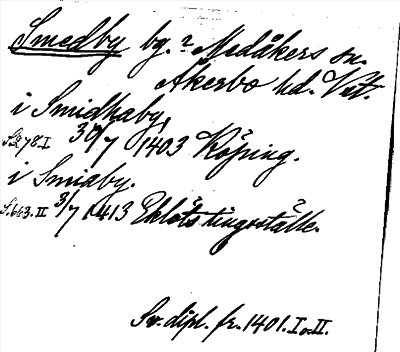 Smedby by.? Medåkers sn.
Åkerbo hd. Vstm.
i Smidhaby,
S. 278. I. 30/7 1403 Köping.
i Smidby.
S. 663. II 3/7 1413 Eklöts? tingsställe.
Sv. dipl. fr. 1401. I o. II.